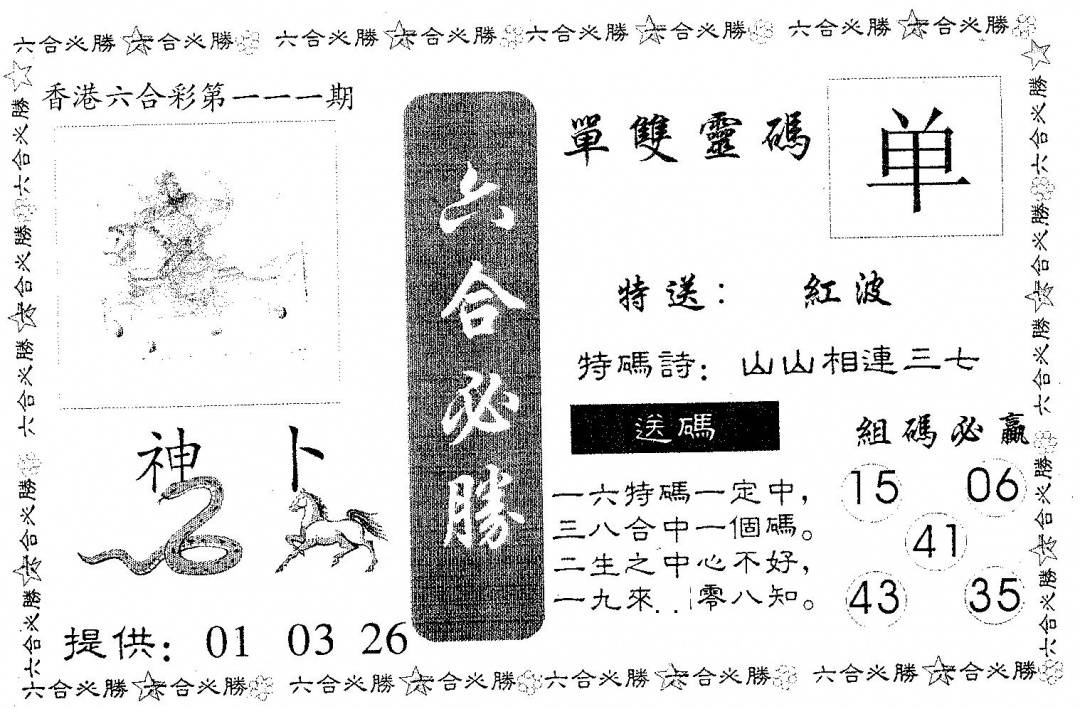 六合必勝 六合必勝 六合必勝 六合必勝 六合必勝 六合必勝 六合必勝 六合必勝
香港六合彩第一一一期
六合必勝
單雙靈碼
单
特送： 紅波
特碼詩：山山相連三七
送碼
一六特碼一定中，
三八合中一個碼。
二生之中心不好，
一九來..零八知。
組碼必贏
15 06
41
43 35
神卜
提供：01 03 26
六合必勝 六合必勝 六合必勝 六合必勝
六合必勝 六合必勝 六合必勝 六合必勝 六合必勝
六合必勝 六合必勝 六合必勝 六合必勝 六合必勝
六合必勝 六合必勝 六合必勝 六合必勝